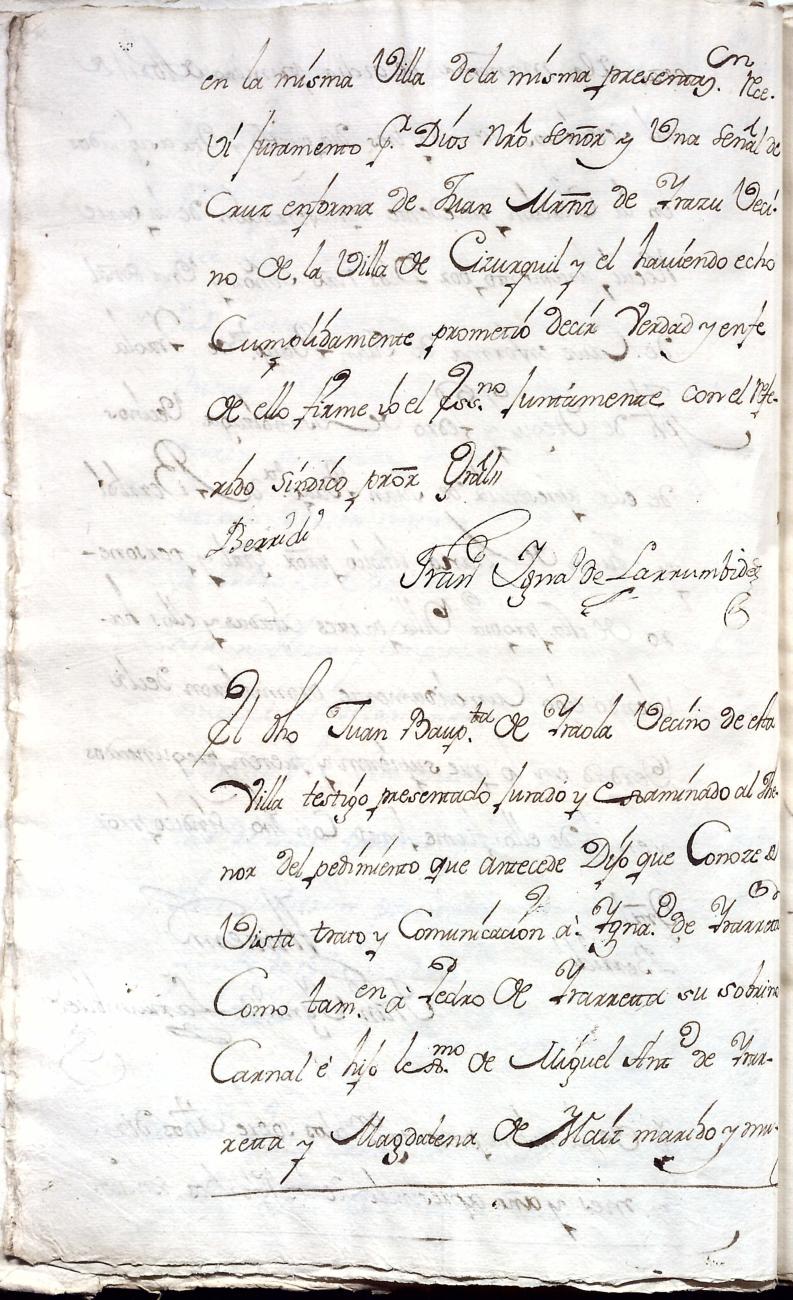 en la misma Villa dela misma presentaz.on Rce-
vi juramento p.r Dios Nrō. señor y Una señal de
Cruz enforma de Juan Mrñz de Yrazu Veci-
no de, la Villa de Cizurquil y el haviendo echo
Cumplidamente prometió decir Verdad y enfe
de ello firme yo el Ess.no juntamente con el Refe-
rido sindico, prōr Grāl
Berridi
Fran.co Ygna.o de Larrumbide
El dho Juan Baup.ta de Yraola Vecino de esta
Villa testigo presentado jurado y examinado al the-
nor del pedimiento que antecede Dijo que Conoze de
Vista trato y Comunicacion a Ygna.o de Yrarreta
Como tam.en a Pedro de Yrarreta su sobrino
Carnal é hijo lex.mo de Miguel Ant.o de Yrar-
reta y Magdalena de marido y mu-